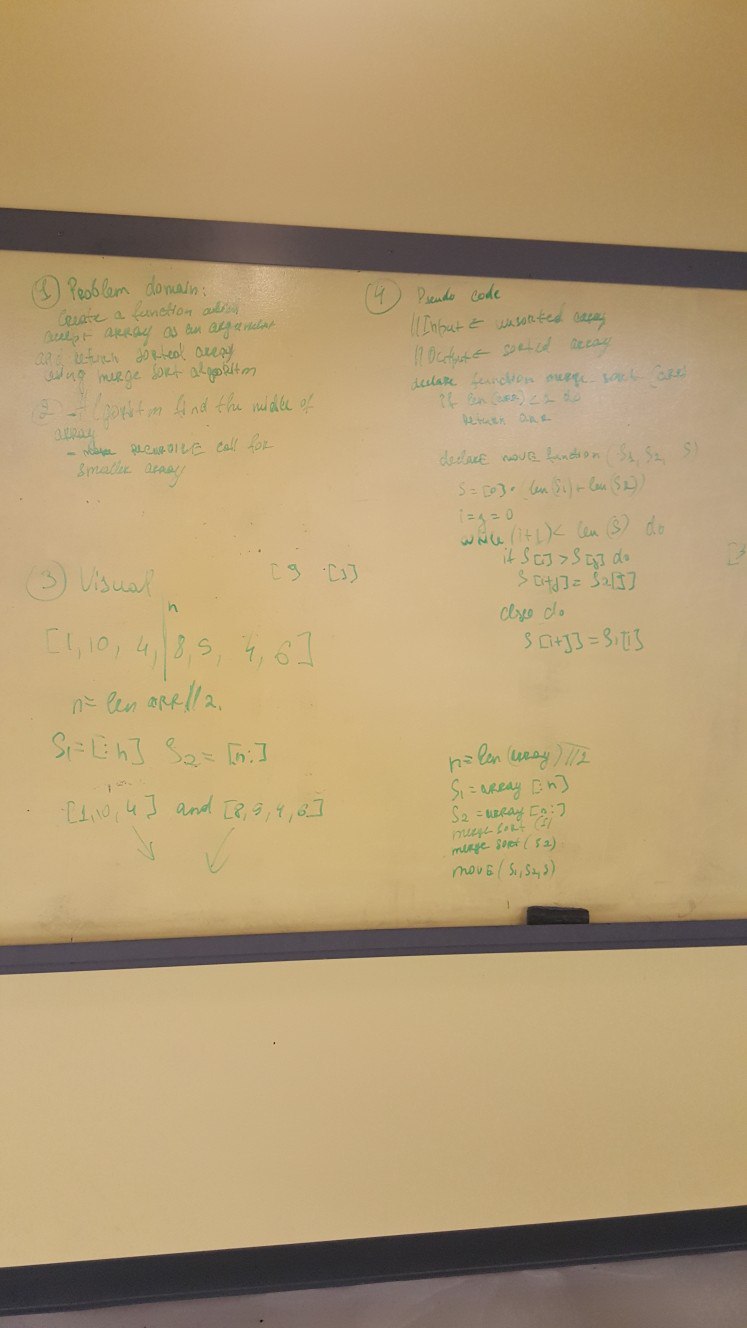 1 Problem domain:
Create a function which
accept array as an argument
and return sorted array
using merge sort algorithm
2 - Algoritm find the middle of
array
- RECURSIVE call for
smaller array
3 Visual
[9 [3]
n
[1, 10, 4, | 8, 9, 4, 6]
n = len ARR // 2.
S1 = [: n] S2 = [n:]
[1, 10, 4] and [8, 9, 4, 6]
4 Pseudo code
// Input ← unsorted array
// Output ← sorted array
declare function merge-sort (arr)
if len (arr) < 2 do
Return arr
declare move function (S1, S2, S)
S = [0] * (len(S1) + len(S2))
i = j = 0
while (i+j) < len (S) do
if S[i] > S[j] do
S [i+j] = S2[j]
else do
S [i+j] = S1[i]
[3
n = len (array) // 2
S1 = array [: n]
S2 = array [n:]
merge sort (S1)
merge sort (S2)
move (S1, S2, S)